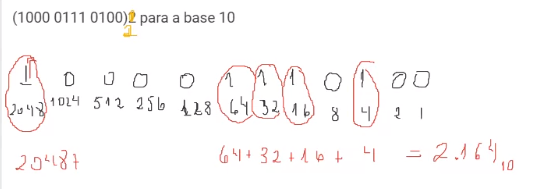 (1000 0111 0100)2 para a base 10
1 0 0 0 0 1 1 1 0 1 0 0
2048 1024 512 256 128 64 32 16 8 4 2 1
2048+ 64+32+16+ 4 = 2.164 10